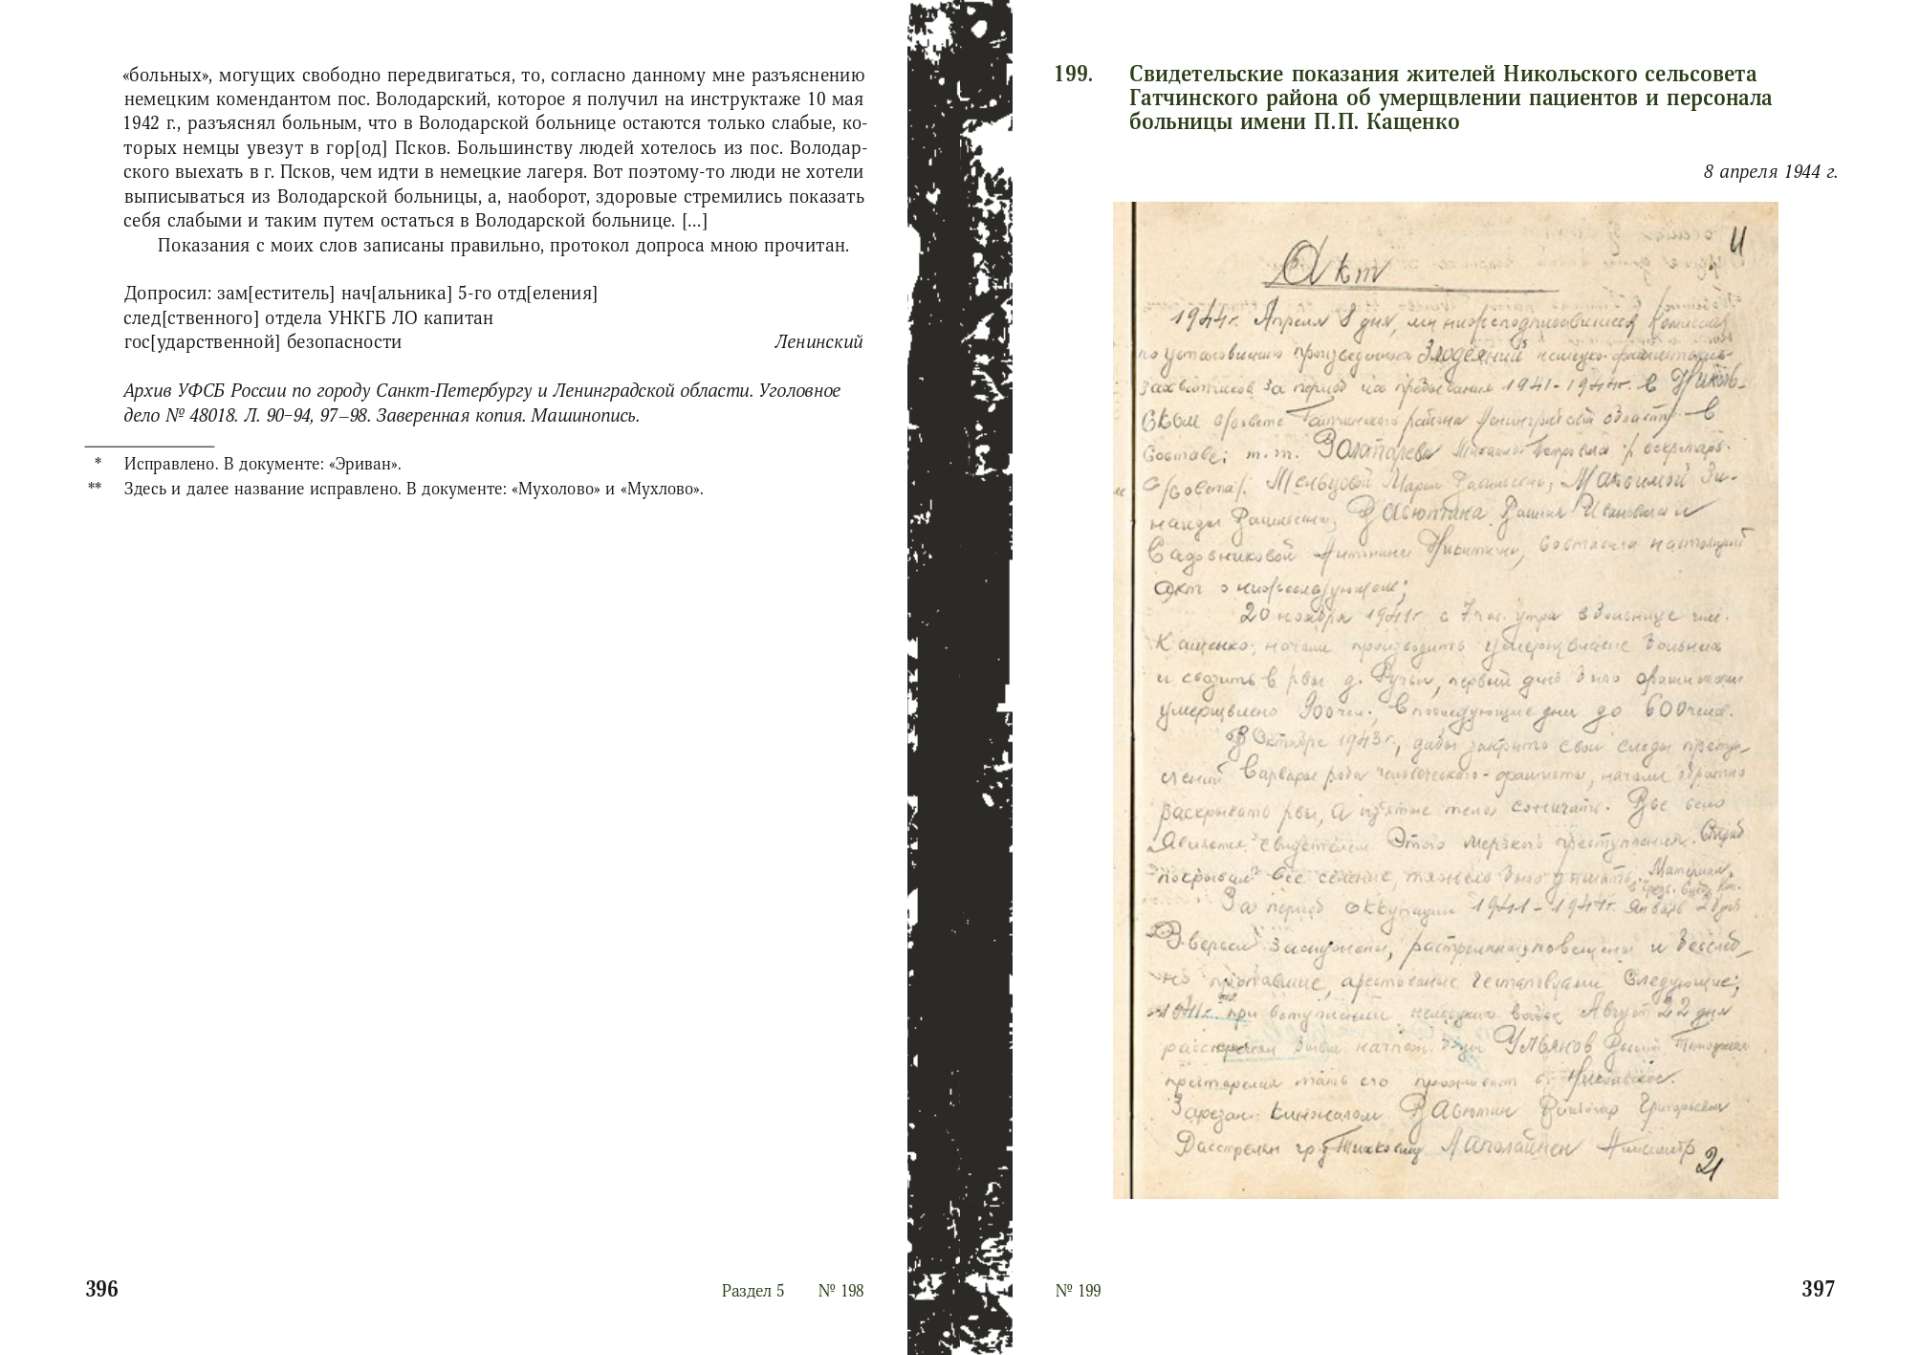 «больных», могущих свободно передвигаться, то, согласно данному мне разъяснению
немецким комендантом пос. Володарский, которое я получил на инструктаже 10 мая
1942 г., разъяснял больным, что в Володарской больнице остаются только слабые, ко-
торых немцы увезут в гор[од] Псков. Большинству людей хотелось из пос. Володар-
ского выехать в г. Псков, чем идти в немецкие лагеря. Вот поэтому-то люди не хотели
выписываться из Володарской больницы, а, наоборот, здоровые стремились показать
себя слабыми и таким путем остаться в Володарской больнице. [...]
Показания с моих слов записаны правильно, протокол допроса мною прочитан.
Допросил: зам[еститель] нач[альника] 5-го отд[еления]
след[ственного] отдела УНКГБ ЛО капитан
гос[ударственной] безопасности Ленинский
Архив УФСБ России по городу Санкт-Петербургу и Ленинградской области. Уголовное
дело № 48018. Л. 90–94, 97–98. Заверенная копия. Машинопись.
* Исправлено. В документе: «Эриван».
** Здесь и далее название исправлено. В документе: «Мухолово» и «Мухлово».
396
Раздел 5 № 198
199. Свидетельские показания жителей Никольского сельсовета
Гатчинского района об умерщвлении пациентов и персонала
больницы имени П.П. Кащенко
8 апреля 1944 г.
Акт
1944 г. Апреля 8 дня, мы нижеподписавшиеся Комиссия
по установлению произведенных Злодеяний немецко-фашистских
захватчиков за период их пребывания 1941-1944 г. в Николь-
ском с/совете Гатчинского района Ленинградской области в
составе: т.т. Золотарева Михаила Петровича /секретарь
с/совета/. Мельцовой Марии Васильевны, Максимой Зи-
наиды Васильевны, Васютина Ивановича и
Садовниковой Антонины Никитичны, составила настоящий
акт о нижеследующем;
20 ноября 1941 г с 7 час. утра в больнице им.
Кащенко, начали производить умерщвление больных
и свозить в рвы д. Ручьи, первый день было фашистами
умерщвлено 900 чел., в последующие дни до 600 челов.
В Октябре 1943 г., дабы закрыть свои следы престу-
плений Варвары рода человеческого - фашисты, начали обратно
раскрывать рвы, а изъятые тела сжигать. Все село
является свидетелем этого мерзкого преступления. Смрад
покрывал все селение, тяжело было дышать.
За период оккупации 1941 - 1944 г. Январь
Зверски замучены, расстреляны, повешены и бесслед-
но пропавшие, арестованные гестаповцами следующие;
1941 г. при вступлении немецких войск Август 22 дня
расстрелян Ульянов
престарелая мать его проживает с. Никольское.
Зарезан кинжалом Васютин Виктор Григорьевич
Расстрелян гр.
21
№ 199
397